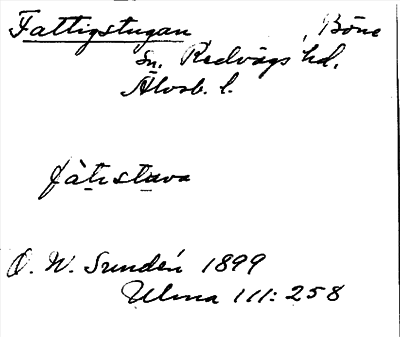 Fattigstugan, Böne
Sn. Redvägs hd.
Älvsb. l.
fàtistuva
O. W. Sundén 1899
Ulma 111: 258